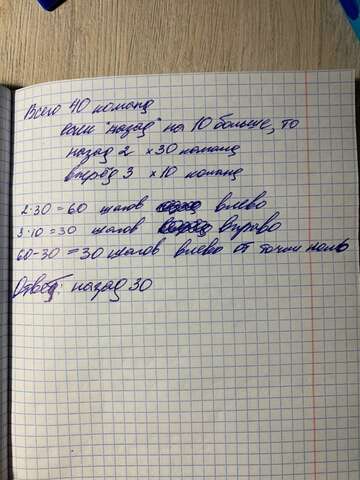 Всего 40 команд
если "назад" на 10 больше, то
назад 2 ×30 команд
вперёд 3 ×10 команд
2·30=60 шагов влево
3·10=30 шагов вправо
60-30=30 шагов влево от точки ноль
Ответ: назад 30